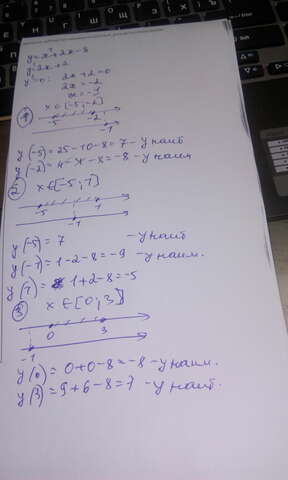 y=x²+2x-8
y'=2x+2
y'=0; 2x+2=0
2x=-2
x=-1
1) x∈[-5;-2]
-5 -2
-1
y(-5)=25-10-8=7 - y наиб
y(-2)=4-4-8=-8 - y наим
2) x∈[-5;1]
-5 1
-1
y(-5)=7 - y наиб
y(-1)=1-2-8=-9 - y наим.
y(1)= 1+2-8=-5
3) x∈[0;3]
0 3
-1
y(0)=0+0-8=-8 - y наим.
y(3)=9+6-8=7 - y наиб.